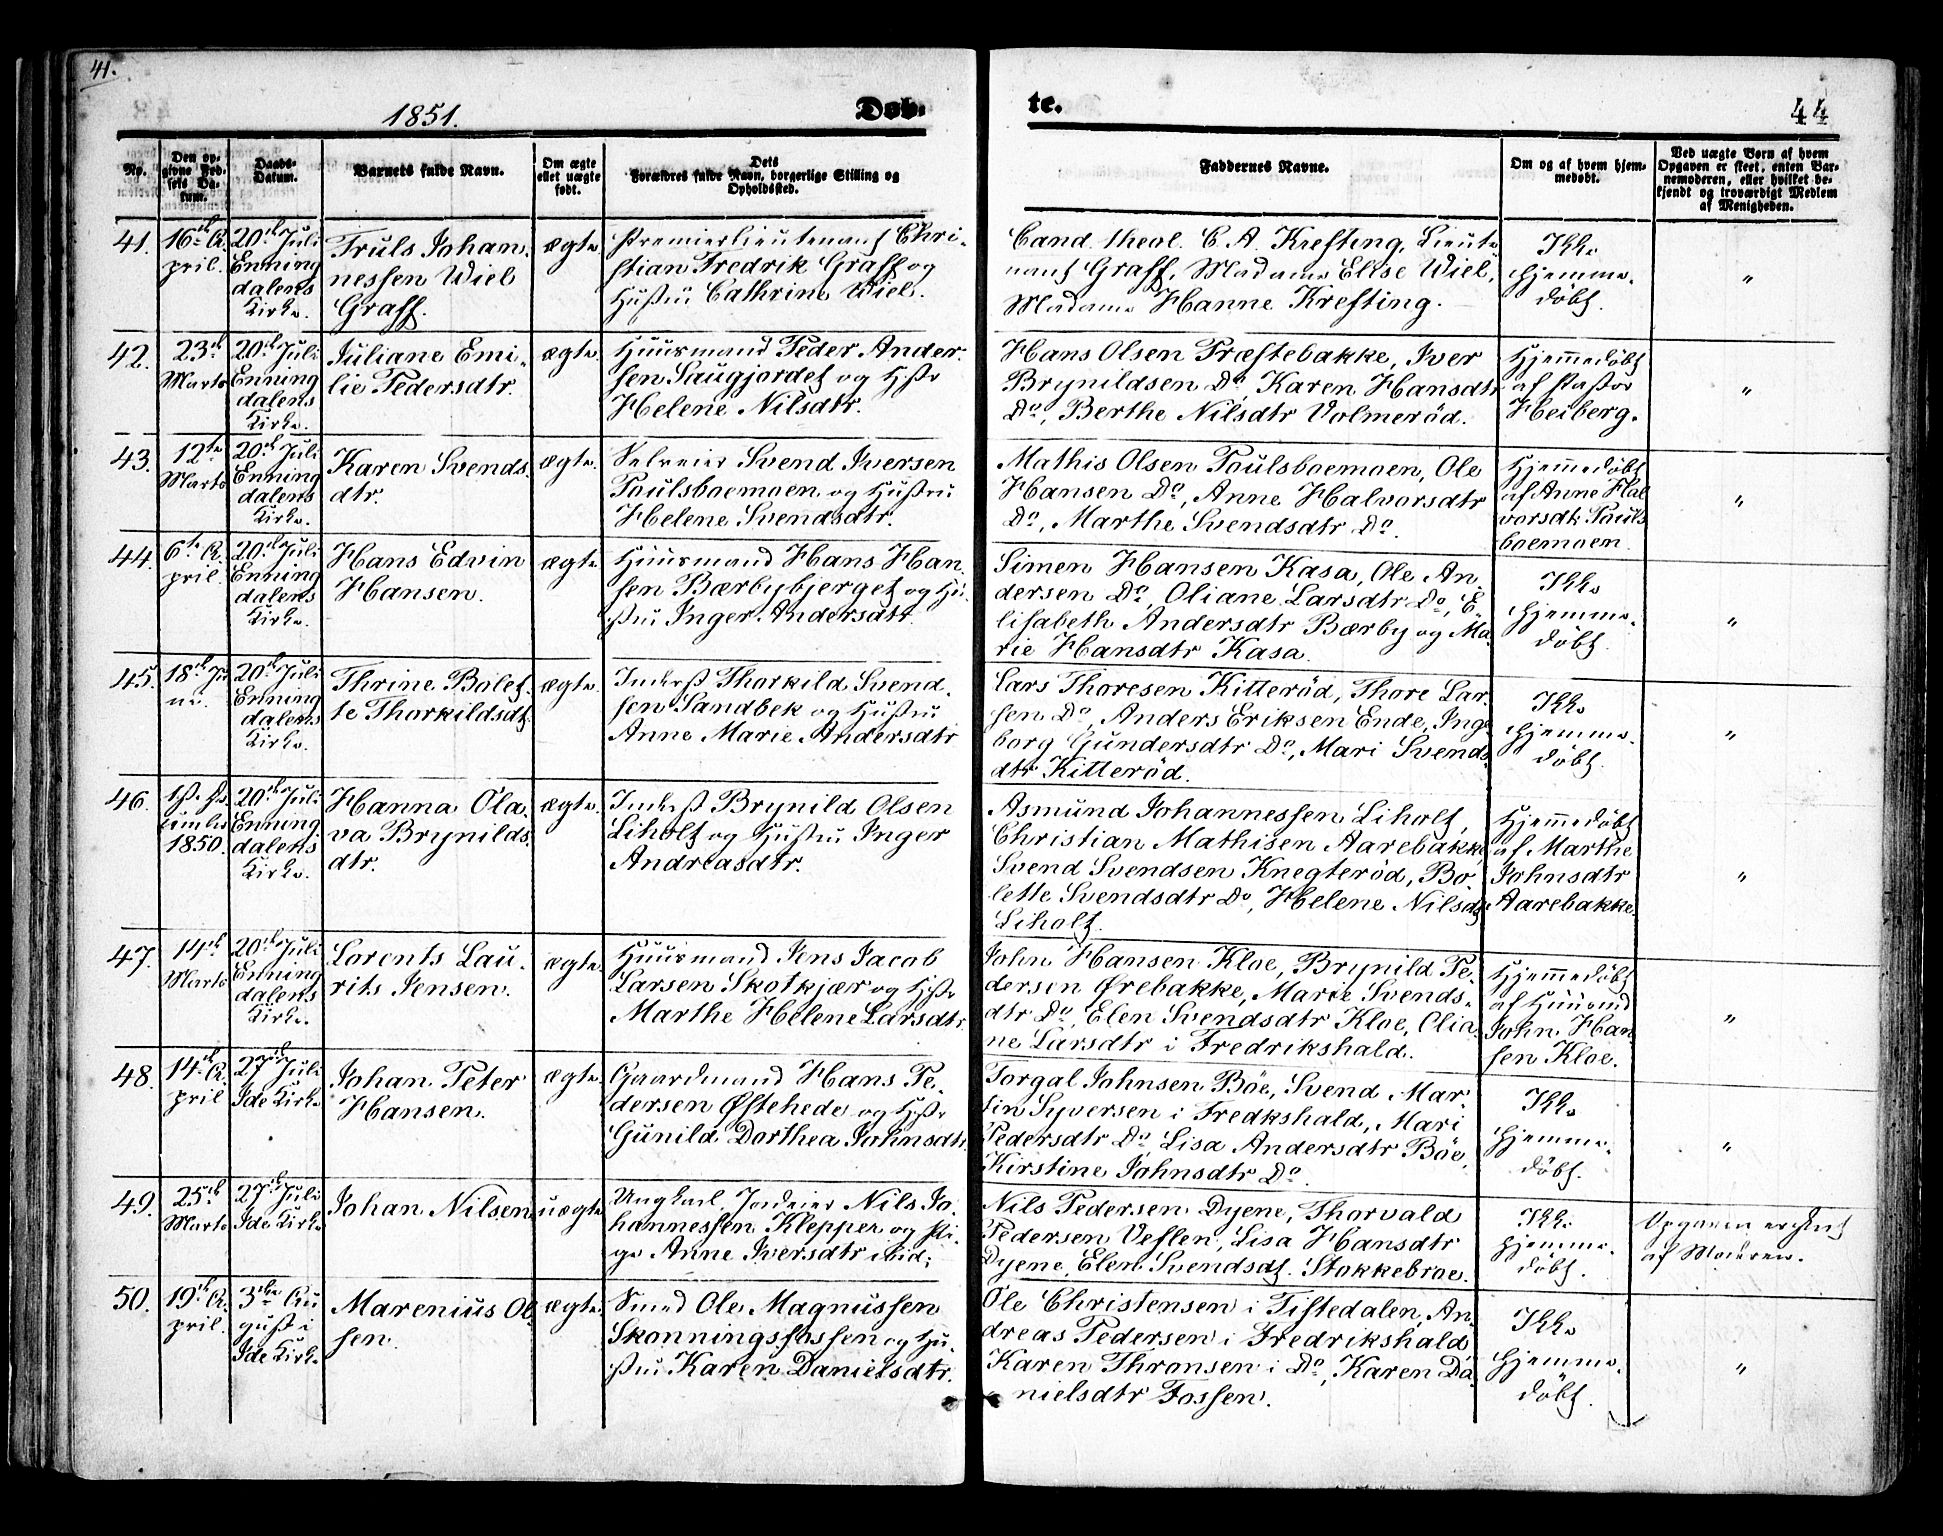 41.
1851.
Døb-
te.
44
No.
Den op-
givne Fød-
sels Da-
tum.
Daabs-
Datum.
Barnets fulde Navn.
Om ægte
ellet uægte
født.
Dets
Forældres fulde Navn, borgerlige Stilling og
Opholdssted.
Faddernes Navne.
Om og af hvem hjem-
medøbt.
Ved uægte Børn af hvem
Opgaven er skeet, enten Bar-
nemoderen, eller hvilket be-
kjendt og troværdigt Medlem
af Menigheden.
41.
16de A-
pril.
20de Juli
Enning
dalens
Kirke.
Truls Johan-
nessen Wiel
Graff.
ægte
Premierlieutenant Chri-
stian Fredrik Graff og
Hustru Cathrine Wiel.
Cand. theol. C. A. Krefting, Lieute
nant Graff, Madame Elise Wiel,
Madame Hanne Krefting.
Ikke
hjemme-
døbt.
"
42.
23de
Marts
20de Juli
Enning
dalens
Kirke.
Juliane Emi-
lie Pedersdtr.
ægte.
Huusmand Peder Ander-
sen Saugjordet og Hstr
Helene Nilsdtr.
Hans Olsen Præstebakke, Iver
Brynildsen Do, Karen Hansdtr
Do, Berthe Nilsdtr Volmerød.
Hjemmedøbt
af Pastor
Heiberg.
"
43.
12te
Marts
20de Juli
Enning
dalens
Kirke.
Karen Svends-
dtr.
ægte.
Selveier Svend Iversen
Poulsboemoen og Hustru
Helene Svendsdtr.
Mathis Olsen Poulsboemoen, Ole
Hansen Do, Anne Halvorsdtr
Do, Marthe Svendsdtr Do.
Hjemmedøbt
af Anne Hal
vorsdtr Pouls
boemoen.
"
44.
6te A-
pril.
20de Juli
Enning
dalens
Kirke.
Hans Edvin
Hansen.
ægte.
Huusmand Hans Han-
sen Bærbybjerget og Hu-
stru Inger Andersdtr.
Simen Hansen Kasa, Ole An-
dersen Do, Oliane Larsdtr Do, E-
lisabeth Andersdtr Bærby og Ma-
rie Hansdtr Kasa.
Ikke
hjemme-
døbt.
"
45.
18de Ju
ni.
20de Juli
Enning
dalens
Kirke.
Thrine Bolet-
te Thorkildsdt.
ægte.
Inderst Thorkild Svend-
sen Sandbek og Hustru
Anne Marie Andersdtr
Lars Thoresen Kitterød, Thore Lar-
sen Do, Anders Eriksen Ende, Inge
borg Gundersdtr Do, Mari Svends-
dtr Kitterød.
Ikke
hjemme-
døbt.
"
46.
1850.
20de Juli
Enning
dalens
Kirke.
Hanna Ola-
va Brynilds-
dtr.
ægte.
Inderst Brynild Olsen
Liholt og Hustru Inger
Andreasdtr.
Asmund Johannessen Liholt,
Christian Mathisen Aarebakke
Svend Svendsen Knegterød, Bo-
lette Svendsdtr Do, Helene Nilsdt
Liholt.
Hjemmedøbt
af Marthe
Johnsdtr
Aarebakke.
"
47.
14de
Marts
20de Juli
Enning
dalens
Kirke.
Lorents Lau-
rits Jensen.
ægte.
Huusmand Jens Jacob
Larsen Skotkjær og Hstr
Marthe Helene Larsdtr.
John Hansen Kloe, Brynild Pe-
dersen Ørebakke, Marie Svends-
dtr Do, Elen Svendsdtr Kloe, Olia-
ne Larsdtr i Fredrikshald.
Hjemmedøbt
af Huusmd
John Han
sen Kloe.
"
48.
14de A-
pril
27de Juli
Ide Kirke
Johan Peter
Hansen.
ægte.
Gaardmand Hans Pe-
dersen Østehede og Hstr
Gunild Dorthea Johnsdtr.
Torgal Johnsen Böe, Svend Mar
tin Syversen i Fredkshald, Mari
Pedersdtr Do, Lisa Andersdtr Böe,
Kirstine Johnsdtr Do.
Ikke
hjemme-
døbt.
"
49.
25de
Marts
27de Juli
Ide Kirke
Johan Nilsen
uægte
Ungkarl, Jordeier Nils Jo-
hannessen Klepper og Pi-
ge Anne Iversdtr ibid;
Nils Pedersen Dyene, Thorvald
Pedersen Veslen, Lisa Hansdtr
Dyene, Elen Svendsdt. Stokkebroe.
Ikke
hjemme-
døbt.
Opgaven er skeet
af Moderen.
50.
19de A-
pril.
3die Au
gust i
Ide Kirke
Marenius Ol-
sen.
ægte.
Smed Ole Magnussen
Skonningsfossen og Hu-
stru Karen Danielsdtr.
Ole Christensen i Tistedalen, An-
dreas Pedersen i Fredrikshald
Karen Thronsen i Do, Karen Da-
nielsdtr Fossen.
Ikke
hjemme-
døbt.
"